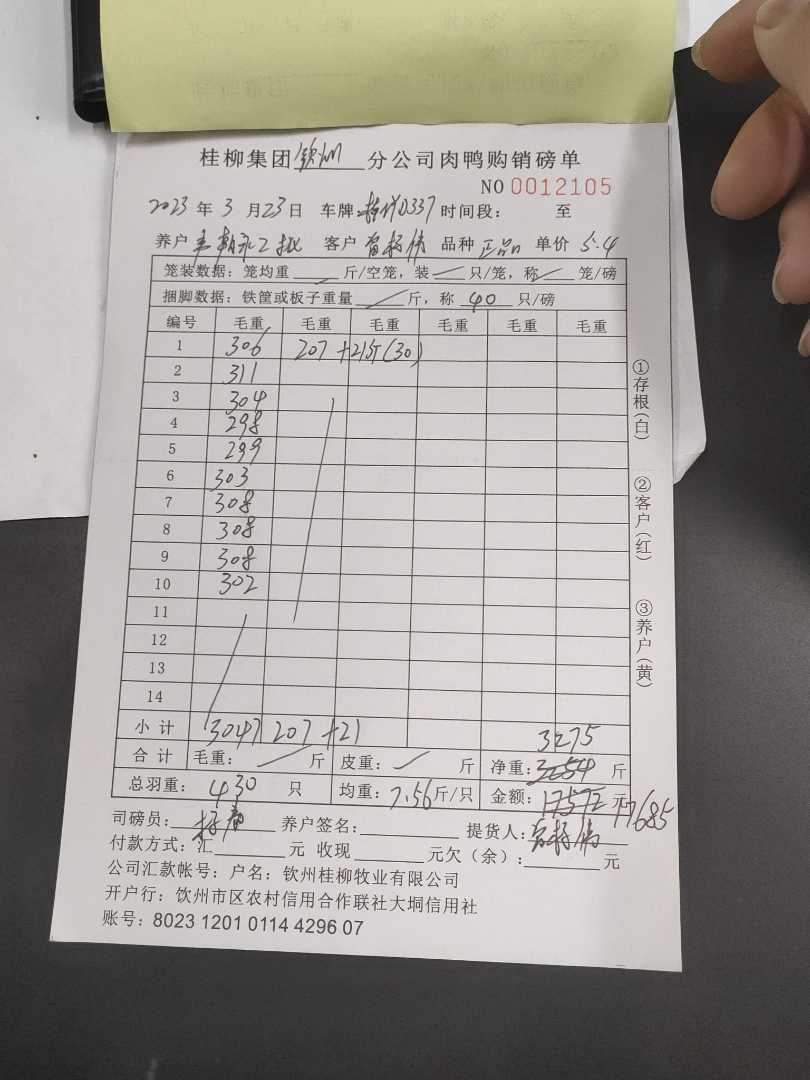 桂柳集团钦州分公司肉鸭购销磅单
NO 0012105
2023 年 3 月 23 日 车牌: 0337 时间段: 至
养户 2批 客户 品种 正品 单价 5.4
笼装数据: 笼均重 斤/空笼, 装 只/笼, 称 笼/磅
捆脚数据: 铁筐或板子重量 斤, 称 40 只/磅
编号 毛重 毛重 毛重 毛重 毛重 毛重
1 306 207 +21斤(30)
2 311
3 304
4 298
5 299
6 303
7 308
8 308
9 308
10 302
11
12
13
14
小计 3047 207 +21
3275
合计 毛重: 斤 皮重: 斤 净重: 3254 斤
总羽重: 430 只 均重: 7.56 斤/只 金额: 17572 元 17685
司磅员: 养户签名: 提货人:
付款方式: 汇 元 收现 元欠(余): 元
公司汇款帐号: 户名: 钦州桂柳牧业有限公司
开户行: 钦州市区农村信用合作联社大垌信用社
账号: 8023 1201 0114 4296 07
①存根(白)
②客户(红)
③养户(黄)